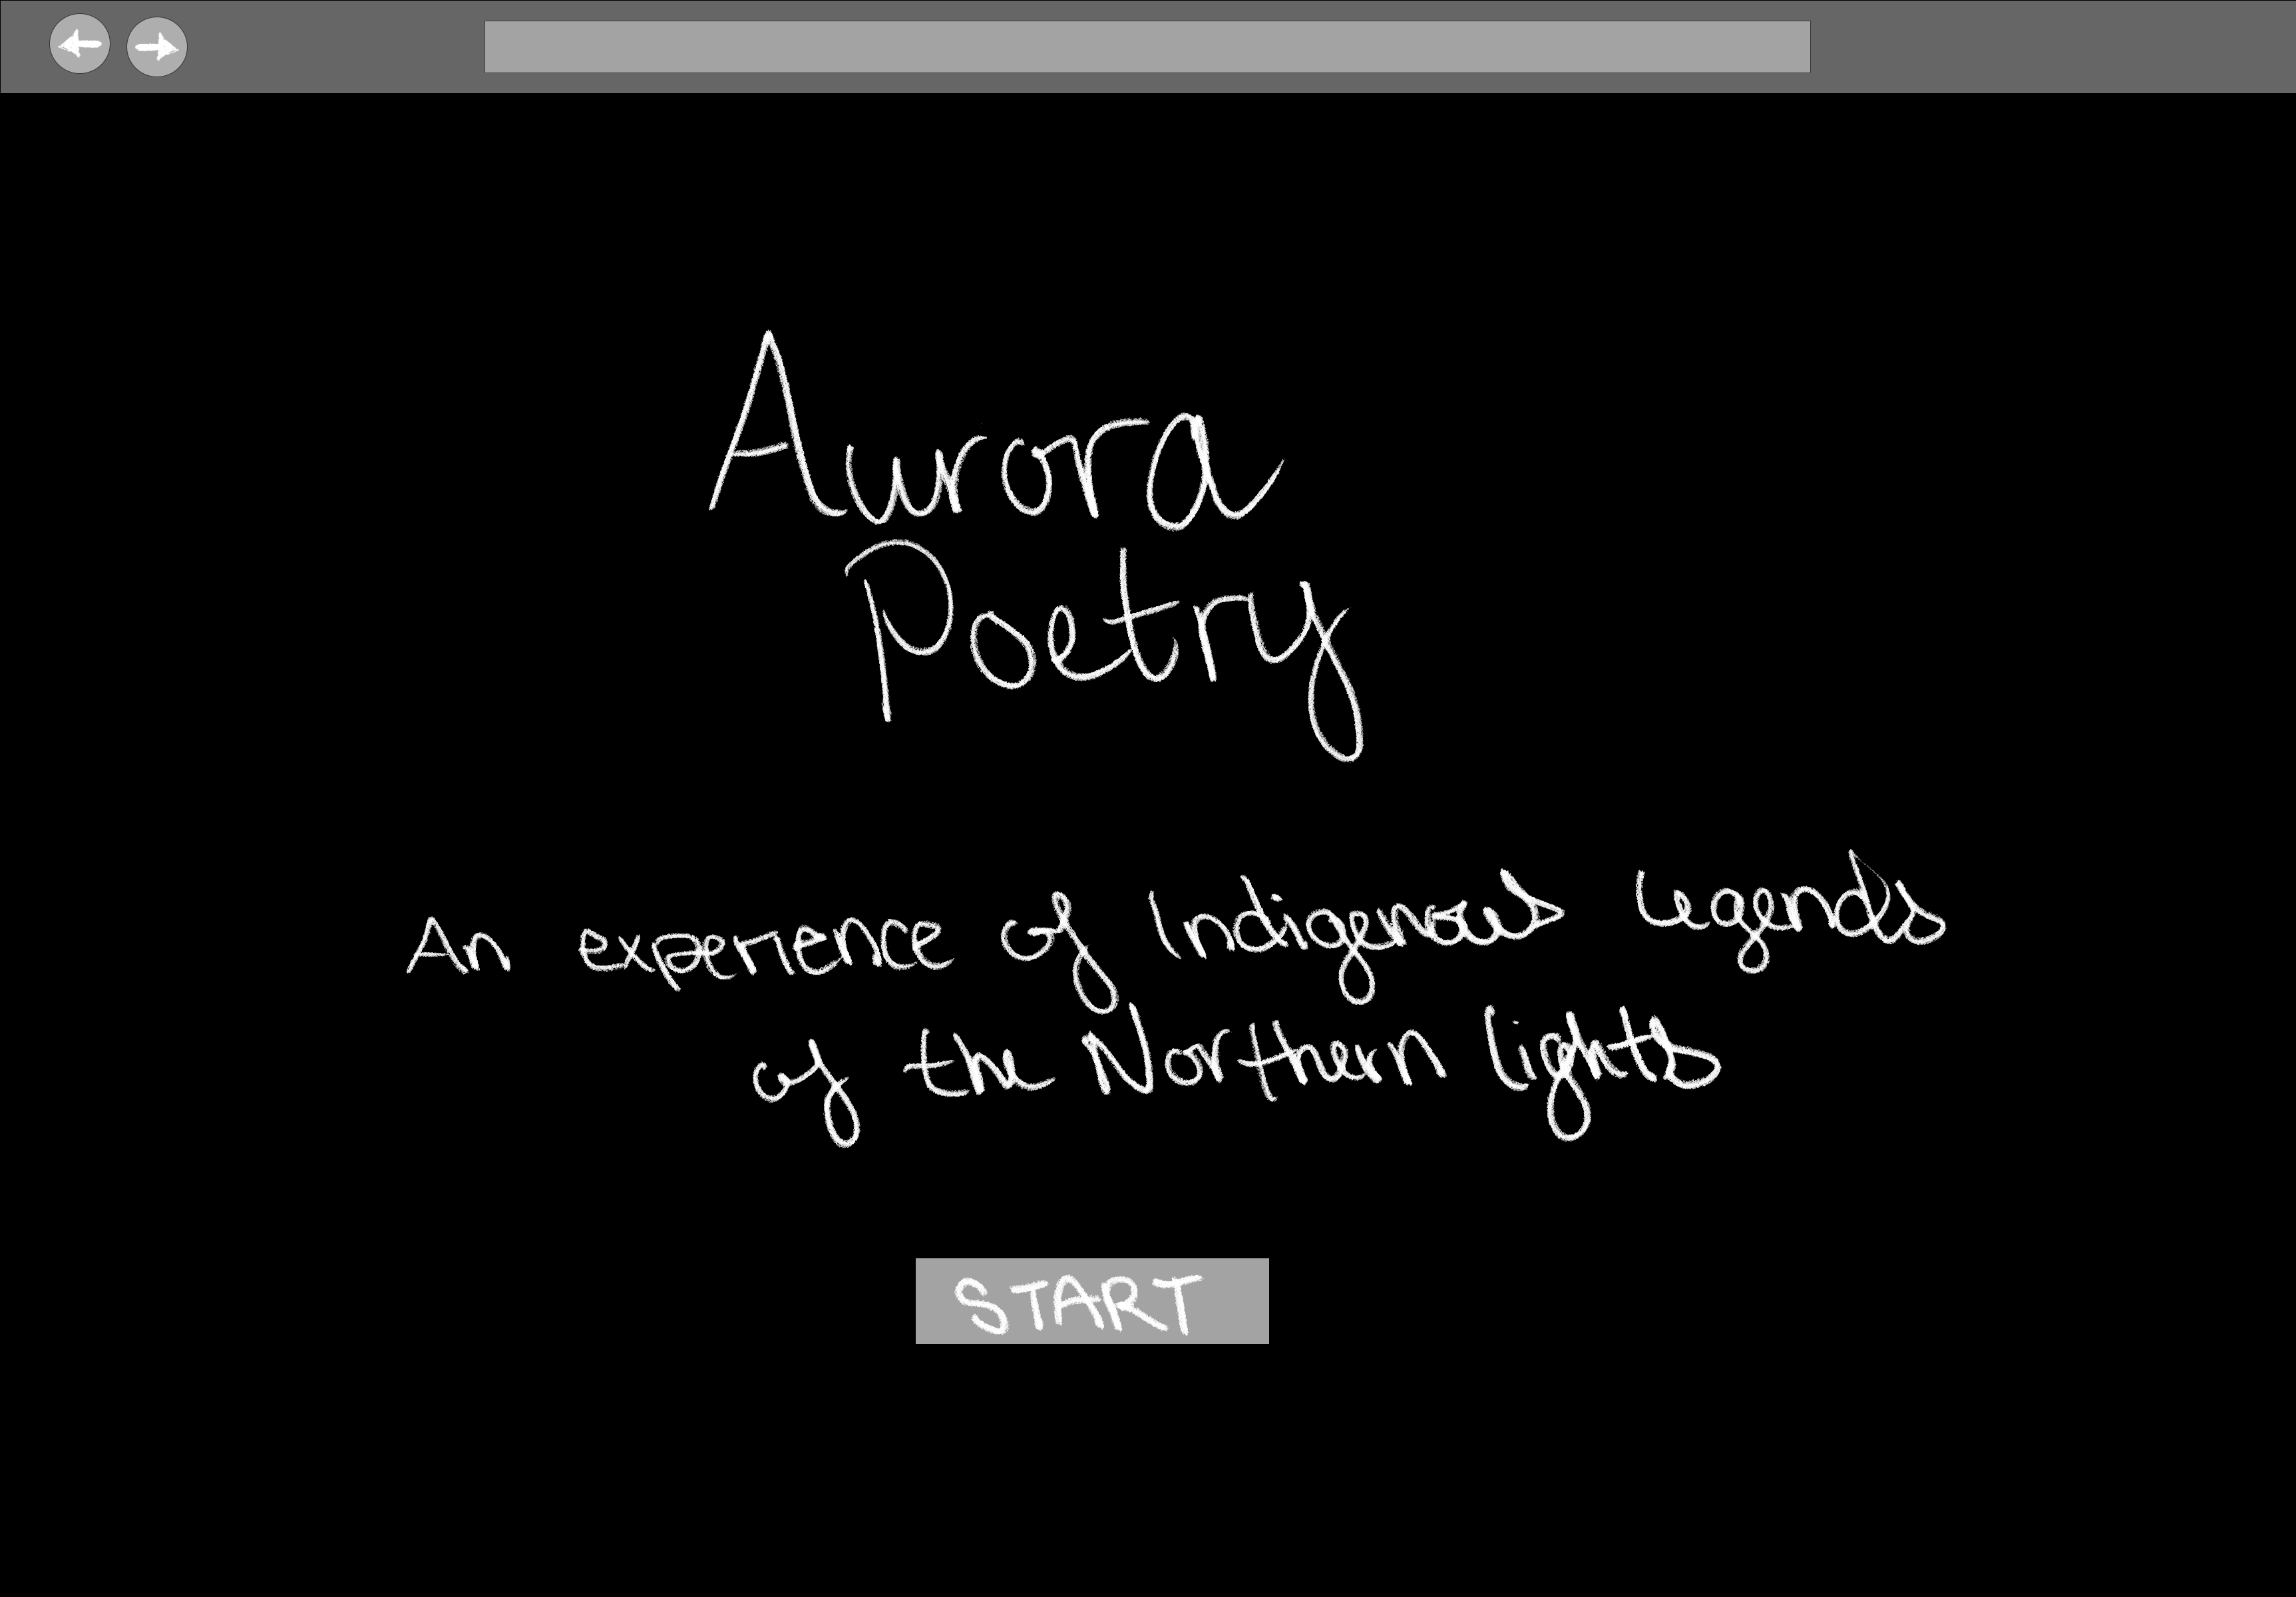 Aurora
Poetry
An experience of Indigenous Legends
of the Northern lights
START